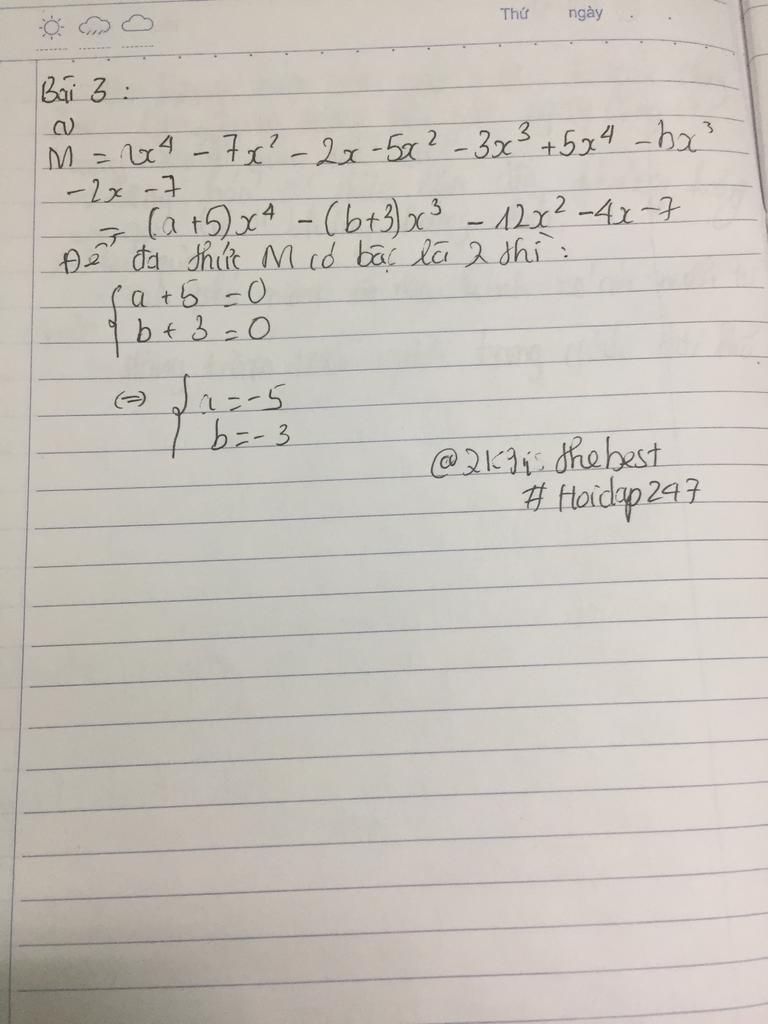 Thứ ngày . .
Bài 3 :
a)
M = ax⁴ - 7x² - 2x - 5x² - 3x³ + 5x⁴ - bx³
- 2x - 7
= (a+5)x⁴ - (b+3)x³ - 12x² - 4x - 7
Để đa thức M có bậc là 2 thì :
{ a + 5 = 0
b + 3 = 0
⇔ { a = -5
b = -3
thebest
# Hoidap247